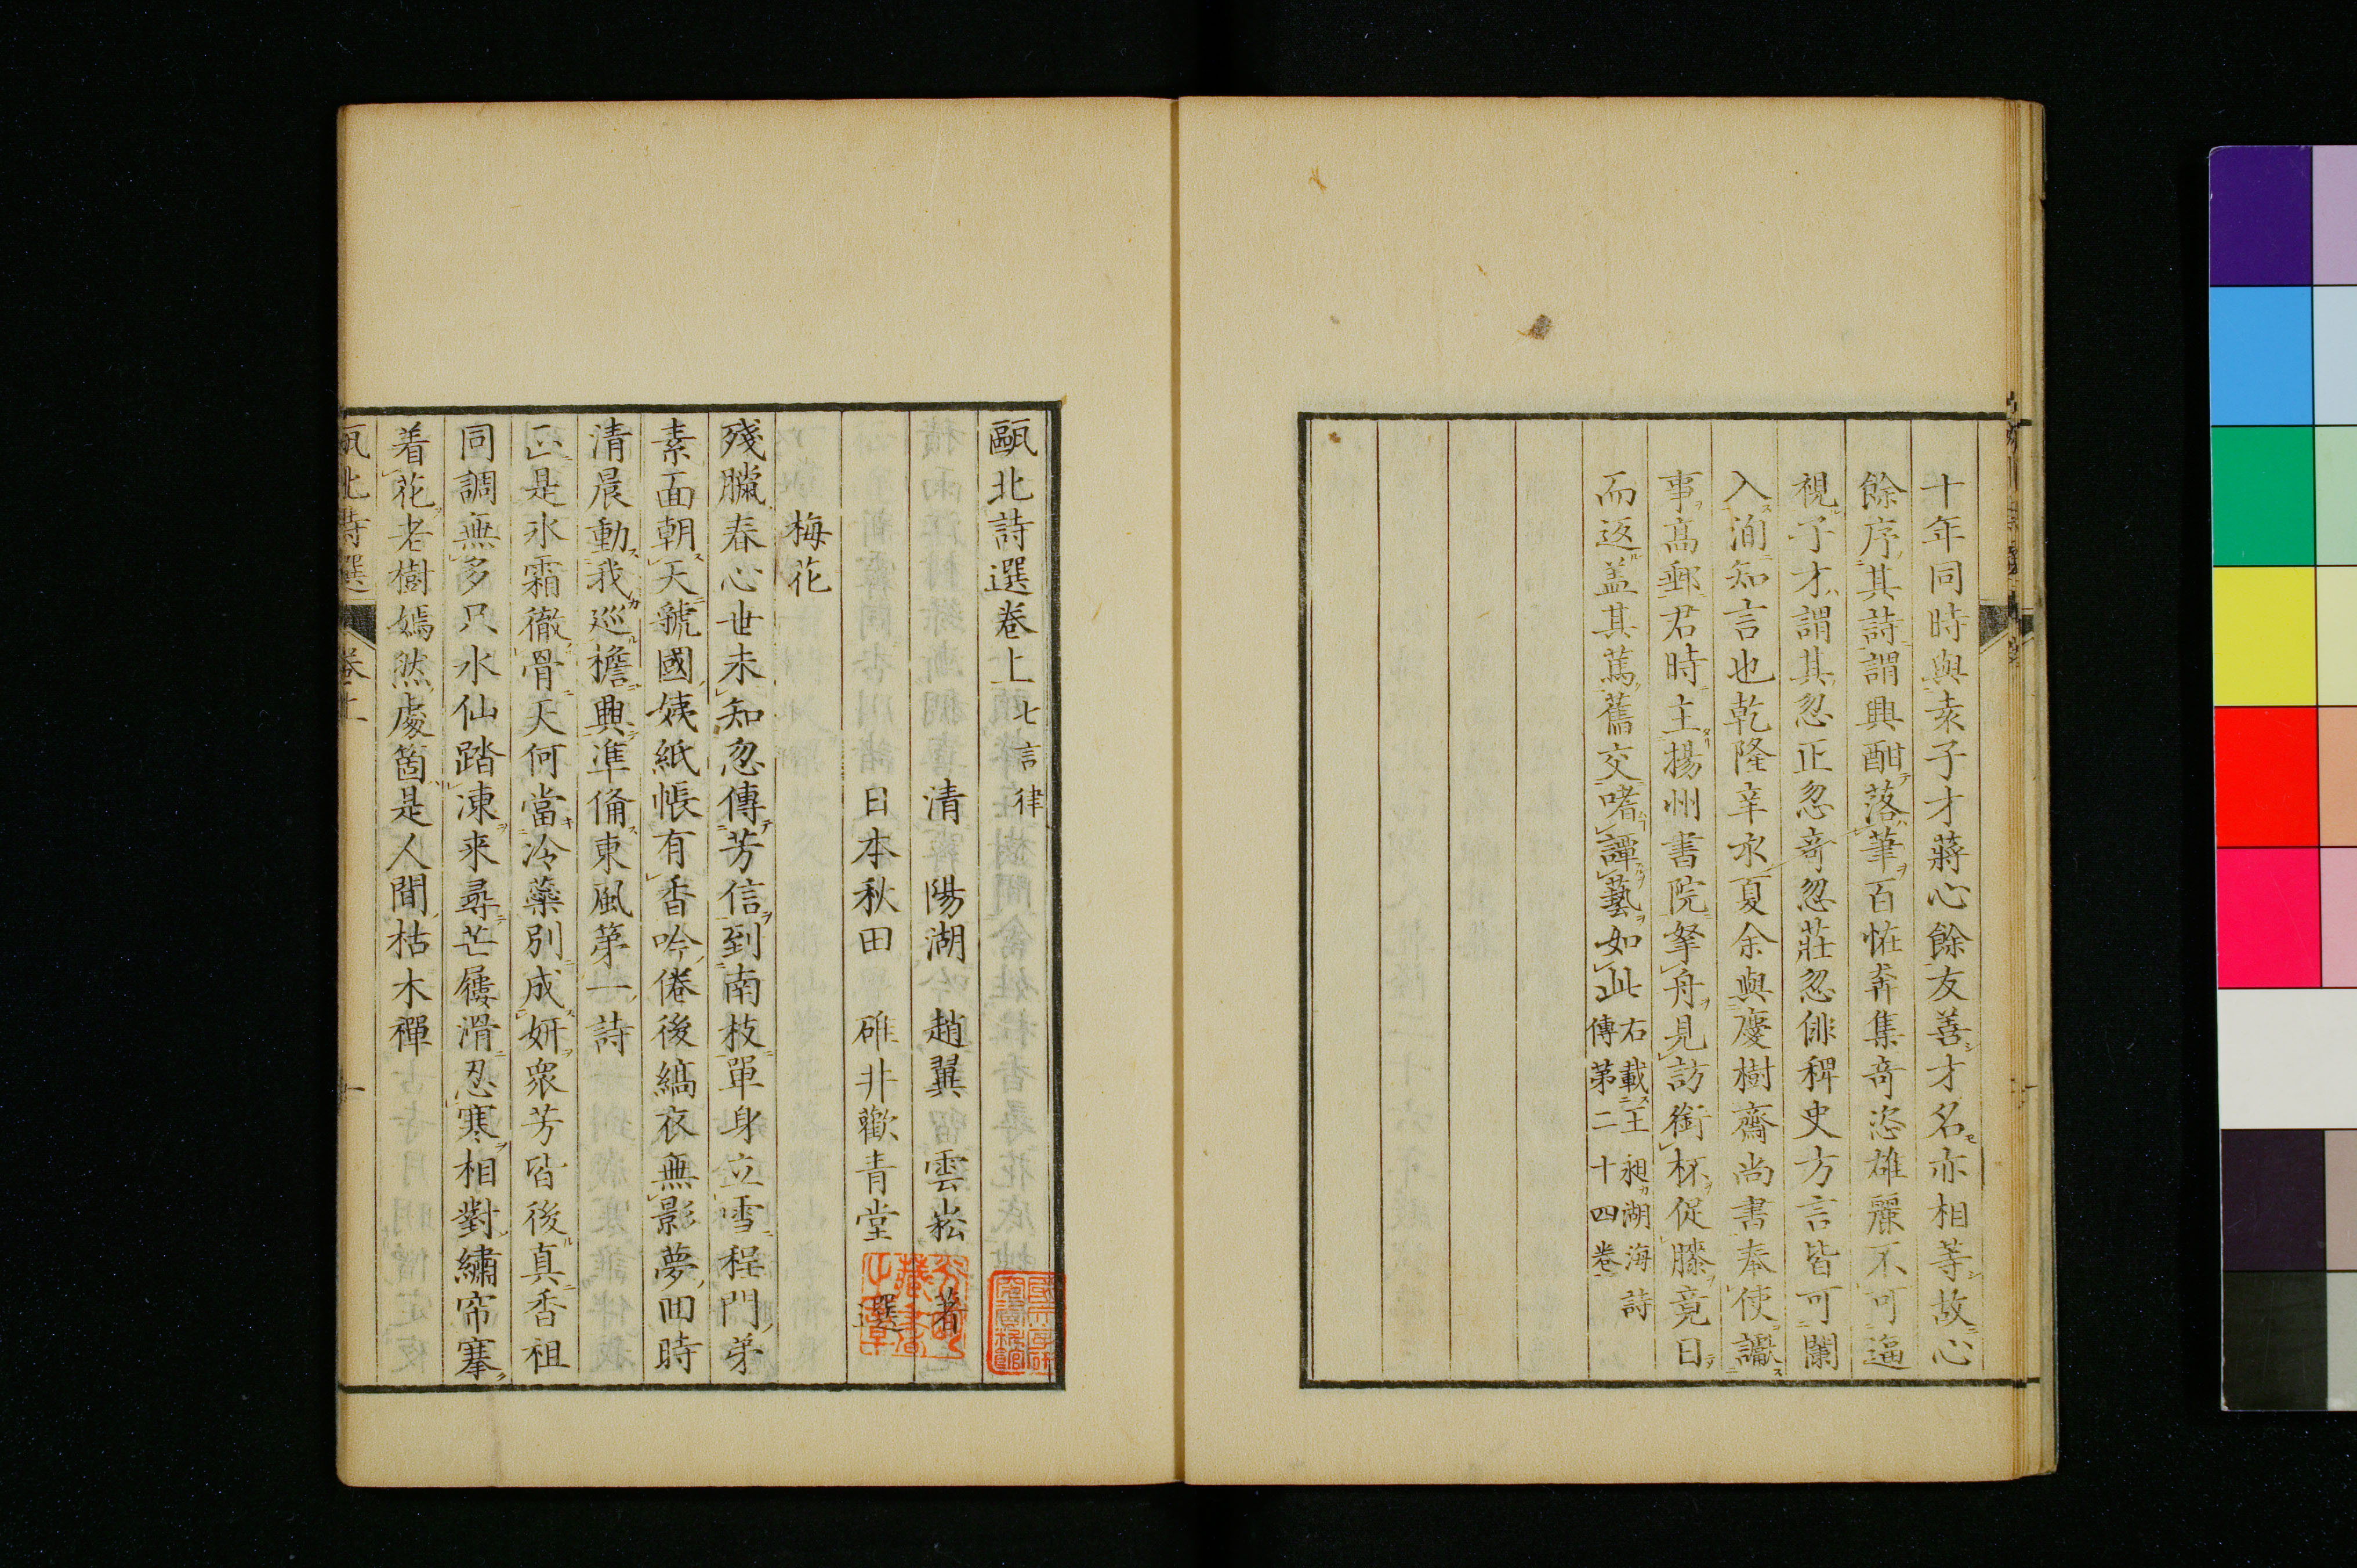 十年同時與袁子才蔣心餘友善才名亦相等故心
餘序其詩謂興酣落筆百怪奔集奇恣雄麗不可逼
視子才謂其忽正忽奇忽莊忽俳稗史方言皆可闌
入洵知言也乾隆辛水夏余與慶樹齋尚書奉使讞
事高郵君時主揚州書院拏舟見訪銜杯促膝竟日
而返盖其篤舊交嗜譚藝如此
右載王昶湖海詩
傳第二十四卷
甌北詩選卷上 七言律
清 陽湖 趙翼 雲崧 著
日本秋田 碓井歡 青堂 選
梅花
殘臘春心世未知忽傳芳信到南枝單身立雪程門弟
素面朝天虢國姨紙帳有香吟倦後縞衣無影夢回時
清晨動我巡檐興準備東風第一詩
正是氷霜徹骨天何當冷蘂別成妍衆芳皆後真香祖
同調無多只水仙踏凍来尋芒屩滑忍寒相對繡帘搴
着花老樹嫣然處箇是人間枯木禪
甌北詩選 卷上 一